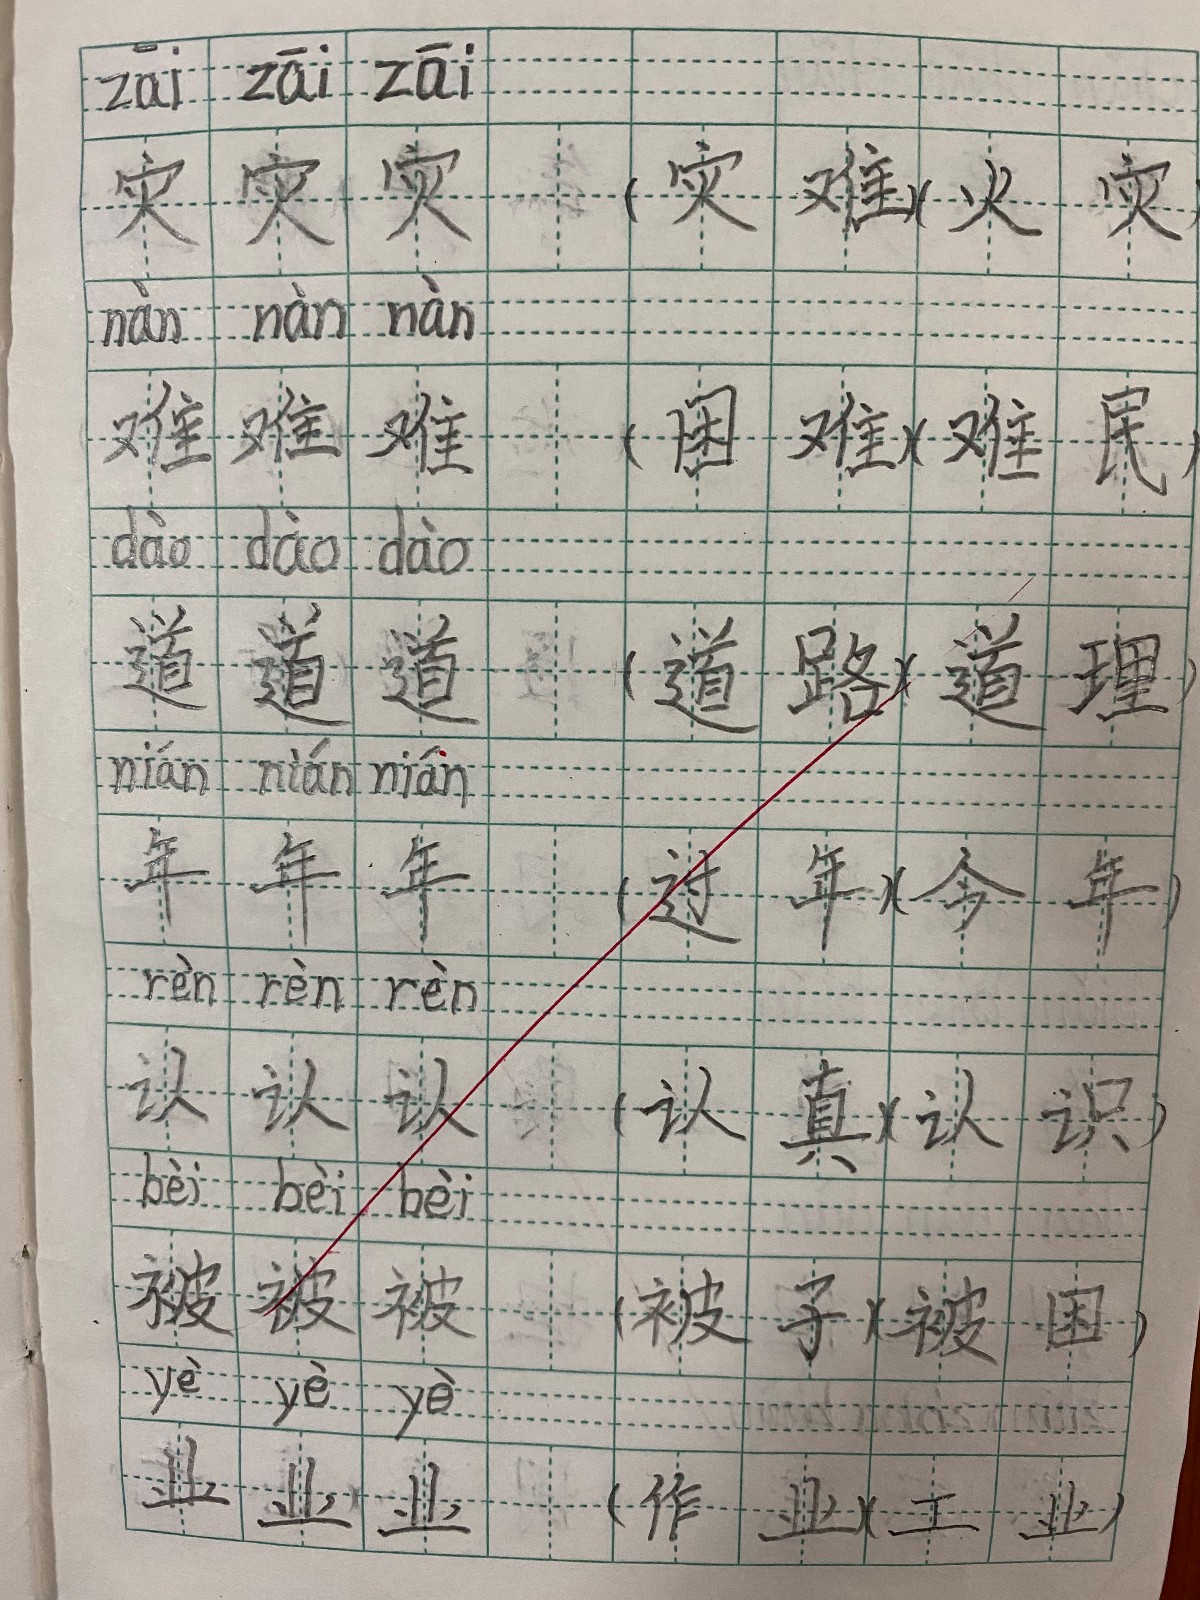 zāi zāi zāi
灾 灾 灾 (灾难)(火灾)
nàn nàn nàn
难 难 难 (困难)(难民)
dào dào dào
道 道 道 (道路)(道理)
nián nián nián
年 年 年 (过年)(今年)
rèn rèn rèn
认 认 认 (认真)(认识)
bèi bèi bèi
被 被 被 (被子)(被困)
yè yè yè
业 业 业 (作业)(工业)